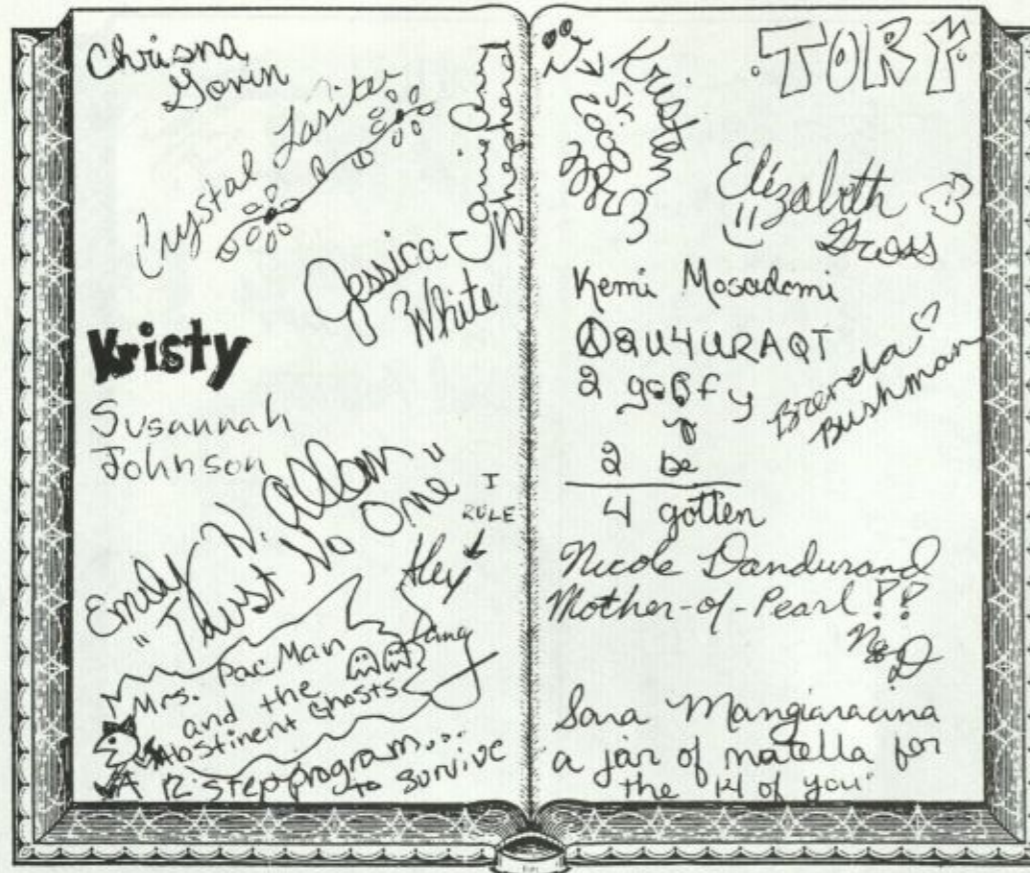 Chrisna
Gorin
Crystal Lasiter
Jessica
White
Kristy
Susannah
Johnson
Emily N. Allen
"Trust No One"
I
RULE
Alex
Mrs. PacMan
and the
Abstinent Ghosts
A 12 step program...
to survive
Kristen
TORY
Elizabeth
Gross
Kemi Mosadomi
2QU4URAQT
2 goofy
2 be
4 gotten
Brenda
Bushman
Nicole Dandurand
Mother-of-Pearl !!
N&D
Sara Mangiaracina
a jar of natella for
the 14 of you"